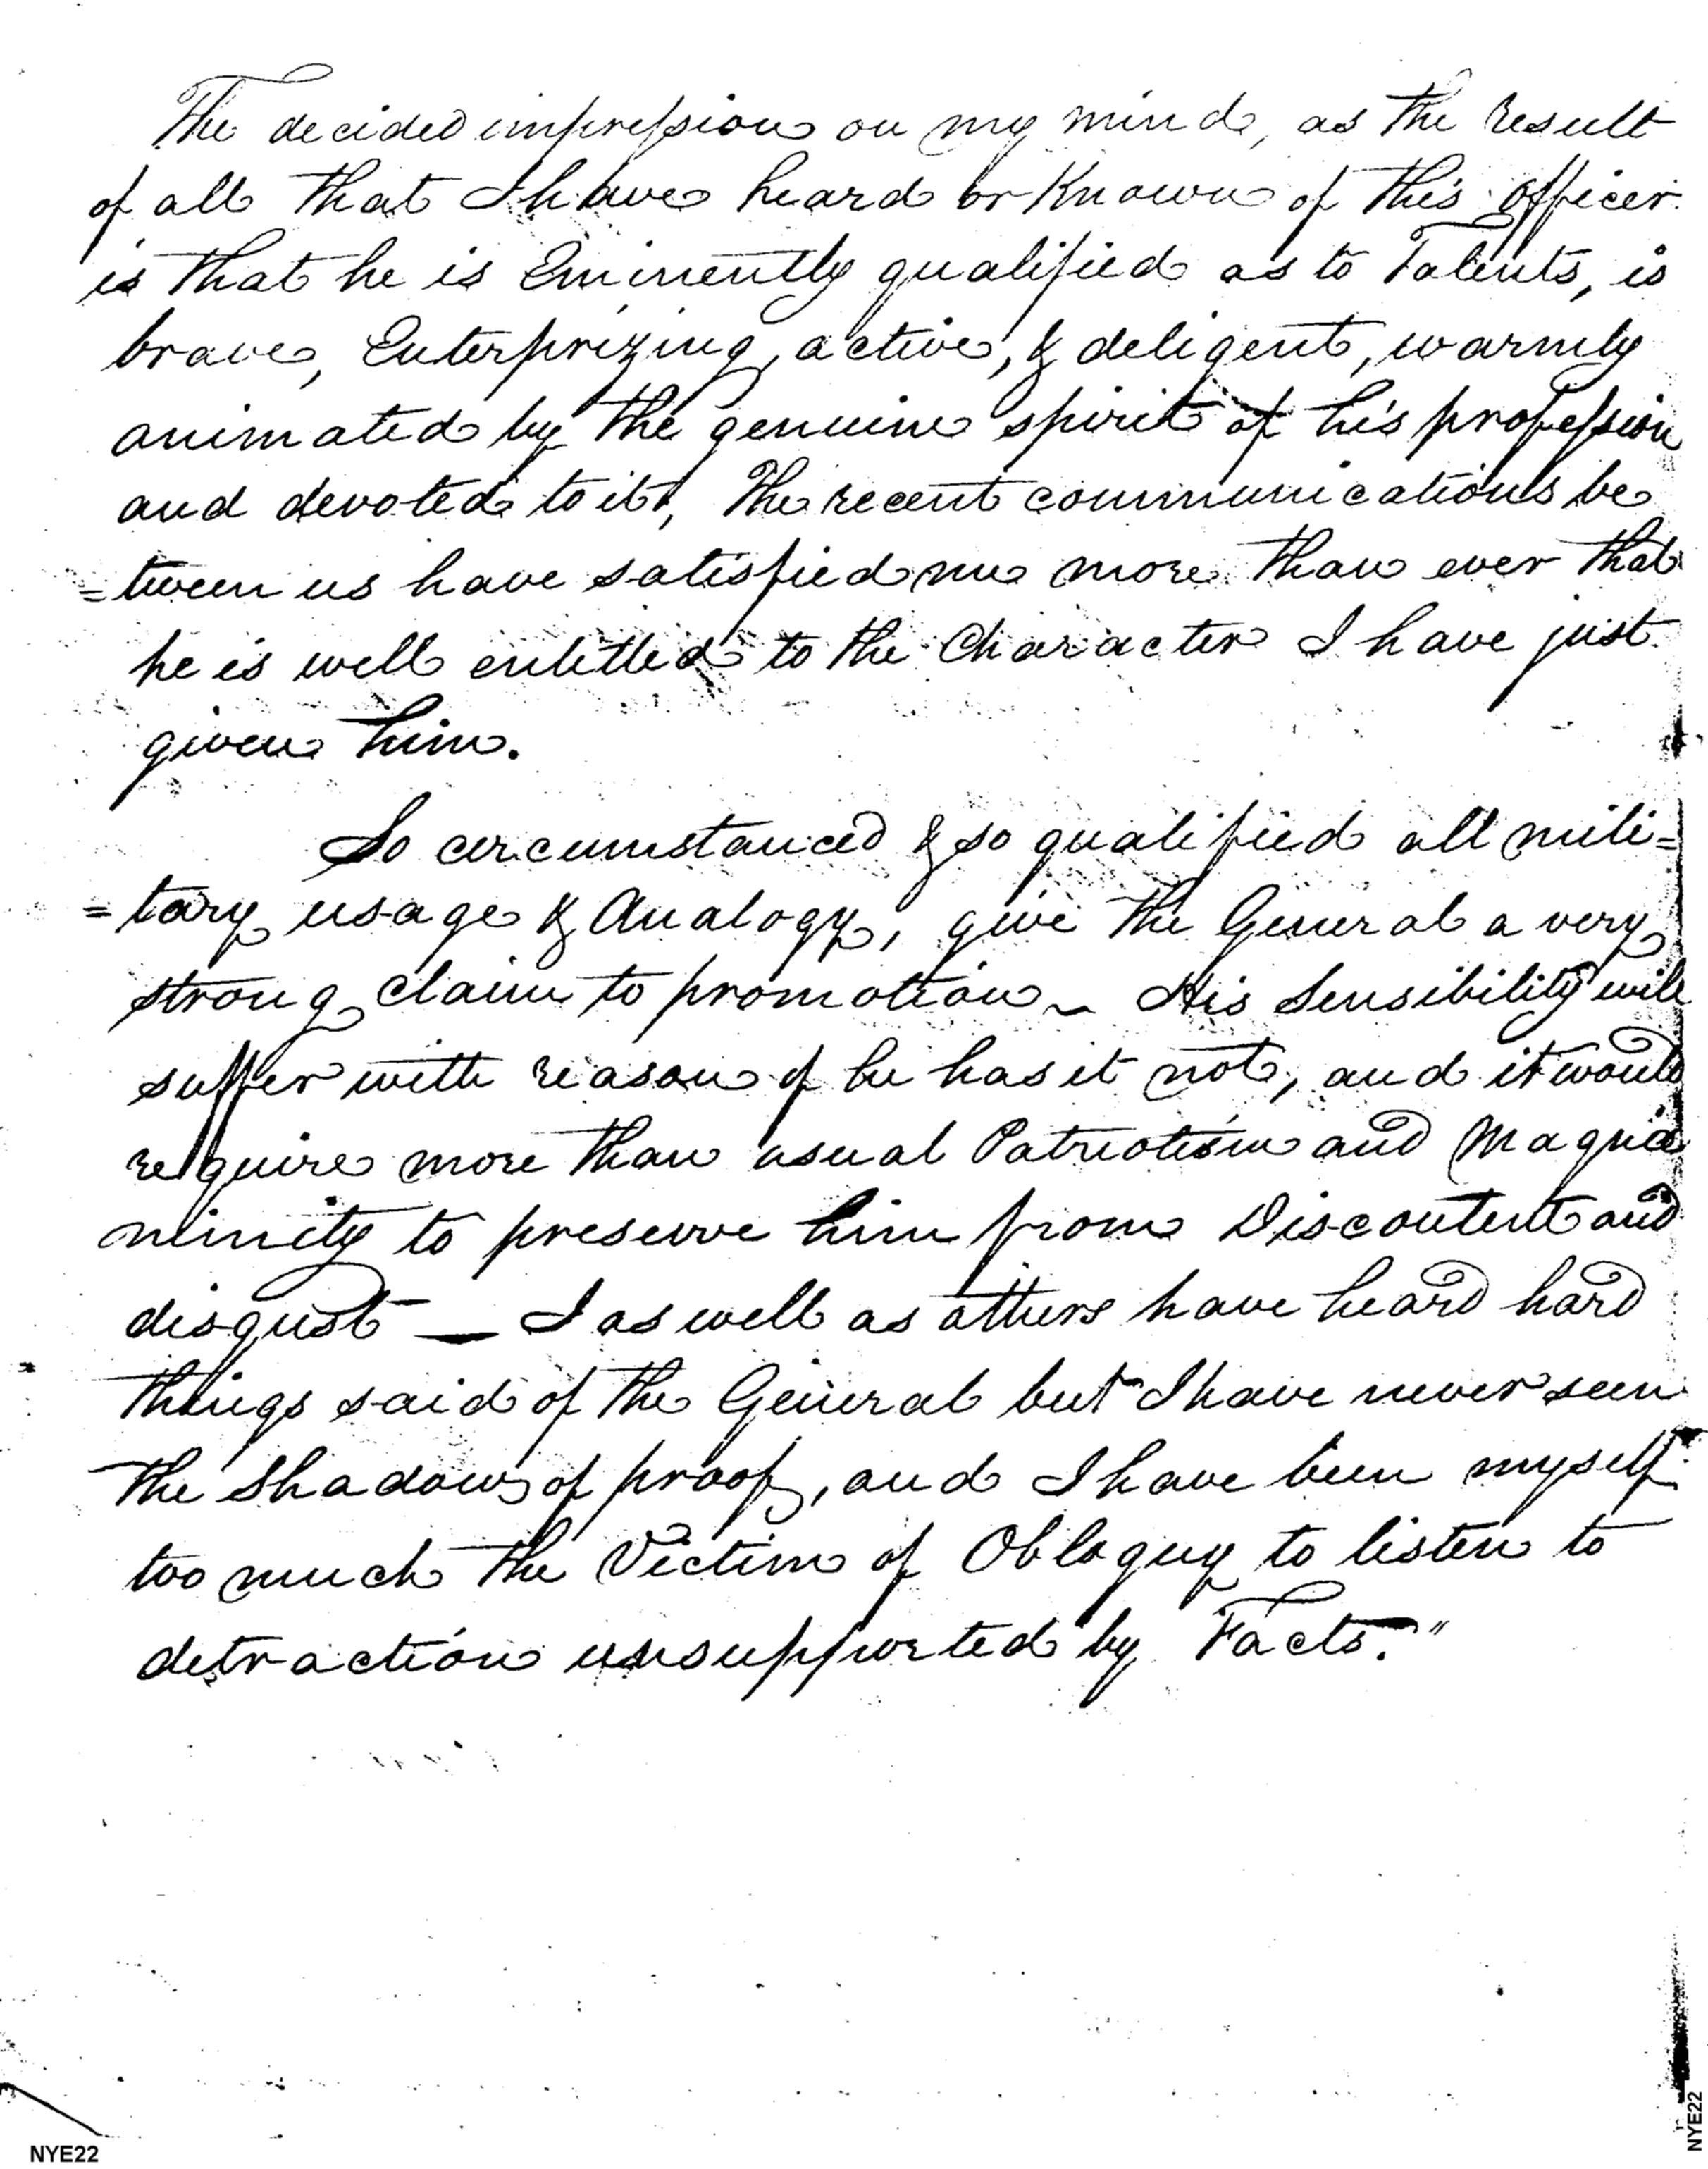 The decided impression on my mind, as the result
of all that I have heard or Known of this officer
is that he is Eminently qualified as to Talents, is
brave, Enterprizing, active, & deligent, warmly
animated by the genuine spirit of his profession
and devoted to it, The recent communications be
=tween us have satisfied me more than ever that
he is well entitled to the Character I have just
given him.
So circumstanced & so qualified all mili=
=tary usage & Analogy, give the General a very
strong claim to promotion – His Sensibility will
suffer with reason if he has it not, and it would
require more than usual Patriotism and Magna
nimity to preserve him from Discontent and
disgust — I as well as others have heard hard
things said of the General but I have never seen
the Shadow of proof, and I have been myself
too much the Victim of Obloquy to listen to
detraction unsupported by Facts."
NYE22
NYE22